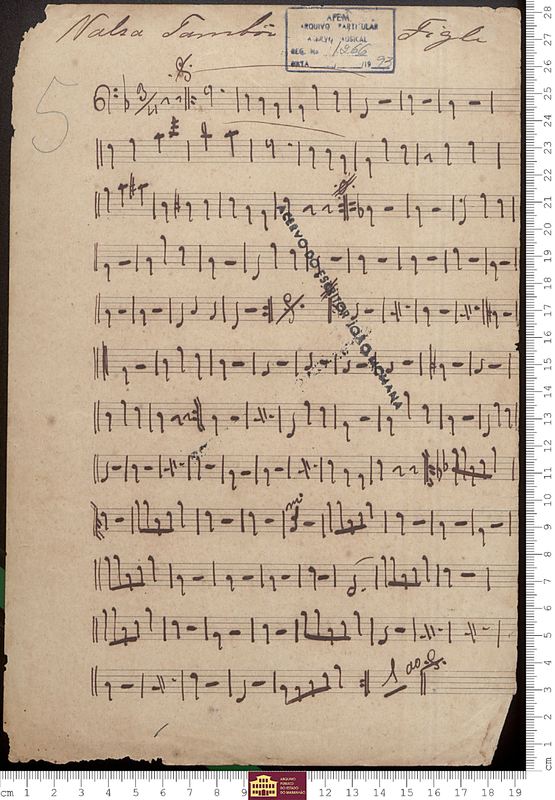 Valsa Tambôr Figle
APEM
ARQUIVO PARTICULAR
ACERVO MUSICAL
REG. No 1266
DATA /19 93
5
3/4
ACERVO DO ESCRITOR JOÃO MOHANA
1 ao
cm 1 2 3 4 5 6 7 8 9 10 11 12 13 14 15 16 17 18 19 20 21 22 23 24 25 26 27 28
cm 1 2 3 4 5 6 7 8 9 12 13 14 15 16 17 18 19
ARQUIVO
PÚBLICO
DO ESTADO
DO MARANHÃO